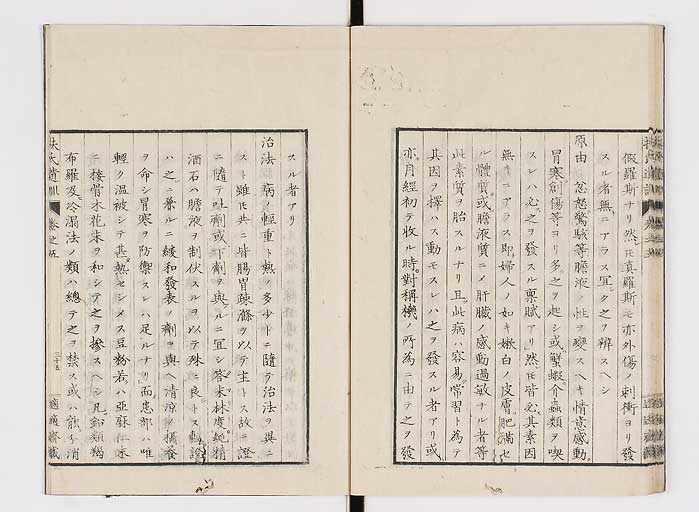 假羅斯ナリ然𪜈眞羅斯モ亦外傷ノ刺衝ヨリ發
スル者無ニアラス宜ク之ヲ辨スヘシ
原由 忿怒驚駭等膽液ノ性ヲ變スヘキ情意感動
冒寒創傷等ヨリ多ク之ヲ起シ或蟹蝦介蟲類ヲ喫
スレハ必之ヲ發スル稟賦アリ然𪜈皆必其素因
無ニアラス即婦人ノ如キ嫩白ノ皮膚肥満セ
ル體質或膽液質ニノ肝臓ノ感動過敏ナル者等
此素質ヲ胎スルナリ且此病ハ容易ク常習ト為テ
其因ヲ擇ハス動モスレハ之ヲ發スル者アリ或
亦月經初テ收ル時對稱機ノ所為ニ由テ之ヲ發
スル者アリ
治法 病ノ輕重ト熱ノ多少トニ隨テ治法ヲ異ニ
スト雖𪜈共ニ皆腸胃疎滌ヲ以テ主トス故ニ證
ニ隨テ吐劑或下劑ヲ與フルニ宜シ答末林度純精
酒石ハ膽液ヲ制伏スルヲ以テ殊ニ良トス輕證
ハ之ニ兼ルニ緩和發表ノ劑ヲ與ヘ清涼ノ攝養
ヲ命シ冒寒ヲ防禦スレハ足ルナリ而患部ハ唯
輕ク温被シテ甚熱セシメス豆粉若ハ亞麻仁末
ニ接骨木花末ヲ和シテ之ヲ摻スヘシ凡鉛類羯
布羅及冷溻法ノ類ハ總テ之ヲ禁ス或ハ能ク消
扶氏遺訓 卷之五 三十五 適適齋藏